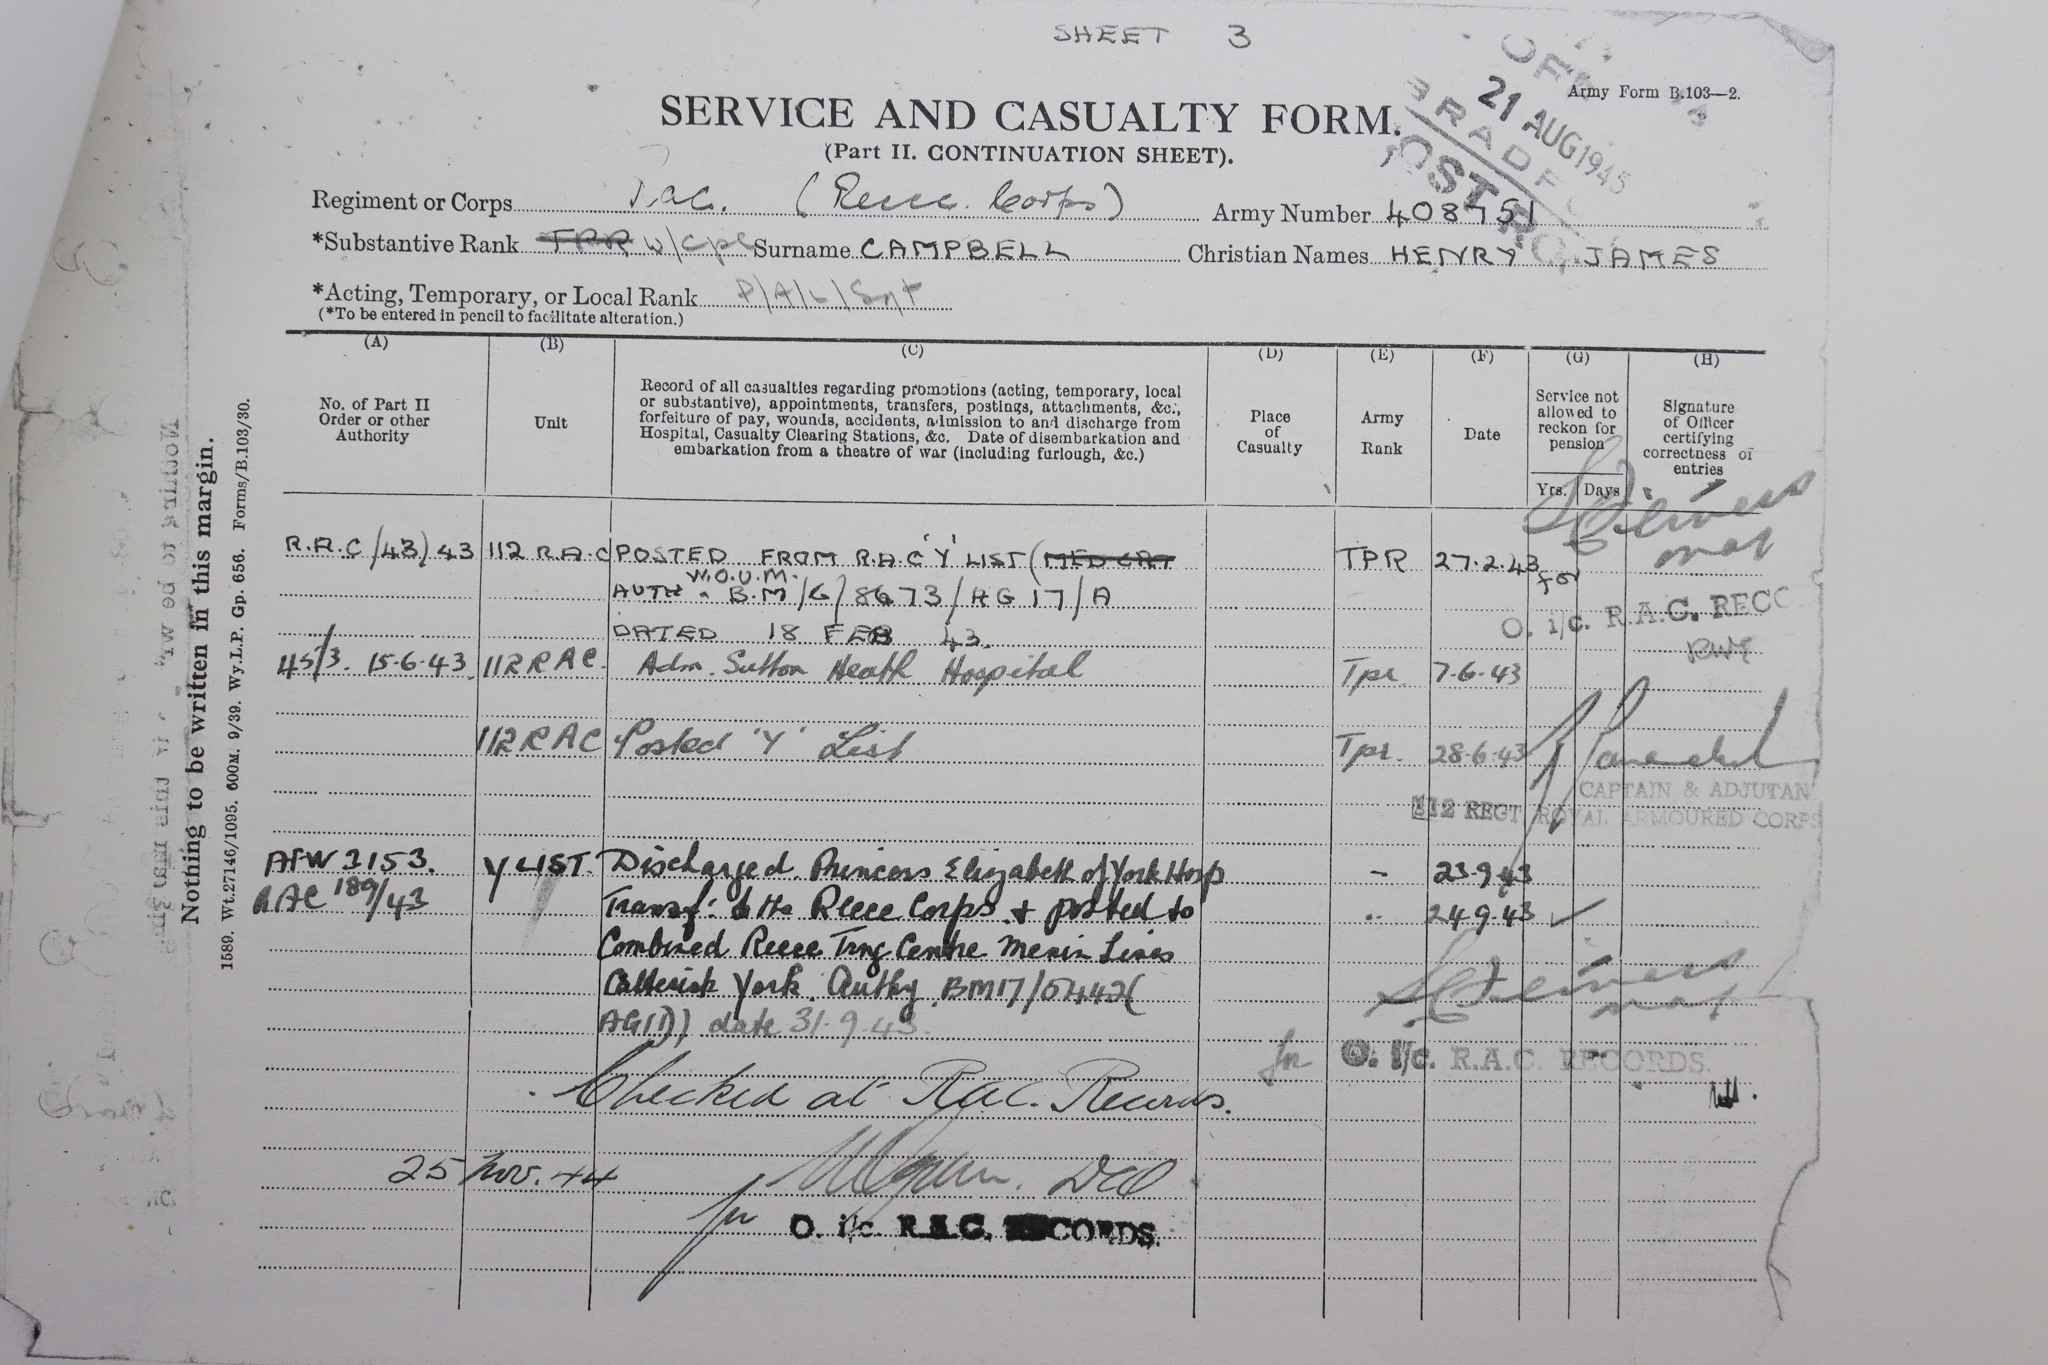 SHEET 3
Army Form B.103—2.
21 AUG 1945
SERVICE AND CASUALTY FORM.
(Part II. CONTINUATION SHEET).
Regiment or Corps R.a.c. (Recce. Corps) Army Number 408751
*Substantive Rank TPR W/Cpl Surname CAMPBELL Christian Names HENRY JAMES
*Acting, Temporary, or Local Rank P/A/L/Sgt
(*To be entered in pencil to facilitate alteration.)
(A) (B) (C) (D) (E) (F) (G) (H)
No. of Part II Order or other Authority
Unit
Record of all casualties regarding promotions (acting, temporary, local
or substantive), appointments, transfers, postings, attachments, &c.,
forfeiture of pay, wounds, accidents, admission to and discharge from
Hospital, Casualty Clearing Stations, &c. Date of disembarkation and
embarkation from a theatre of war (including furlough, &c.)
Place of Casualty
Army Rank
Date
Service not allowed to reckon for pension
Yrs. Days
Signature of Officer certifying correctness of entries
R.A.C/43/43 112 R.A.C POSTED FROM R.A.C 'Y' LIST (MED CAT TPR 27.2.43
W.O.U.M.
AUTH. B.M/G/8673/HG17/A
for
O. i/c. R.A.C. RECO
DATED 18 FEB 43.
45/3. 15-6-43. 112 RAC. Adm. Sutton Heath Hospital Tpr. 7-6-43
112 RAC Posted 'Y' List Tpr. 28-6-43
CAPTAIN & ADJUTAN
112 REGT ROYAL ARMOURED CORPS
AFW 3153. Y LIST. Discharged. Princess Elizabeth of York Hosp - 23.9.43
RAC 189/43 Transf. to the Recce Corps & posted to 24.9.43
Combined Recce Trng Centre Menin Lines
Catterick York. Authy. BM17/6442(
AG(11)) date 31-9-43.
for O. i/c. R.A.C. RECORDS.
Checked at Rac. Records.
25 Nov. 44
for O. i/c. R.A.C. RECORDS.
Nothing to be written in this margin.
1589. Wt.27146/1095. 600M. 9/39. Wy.L.P. Gp. 656. Forms/B.103/30.